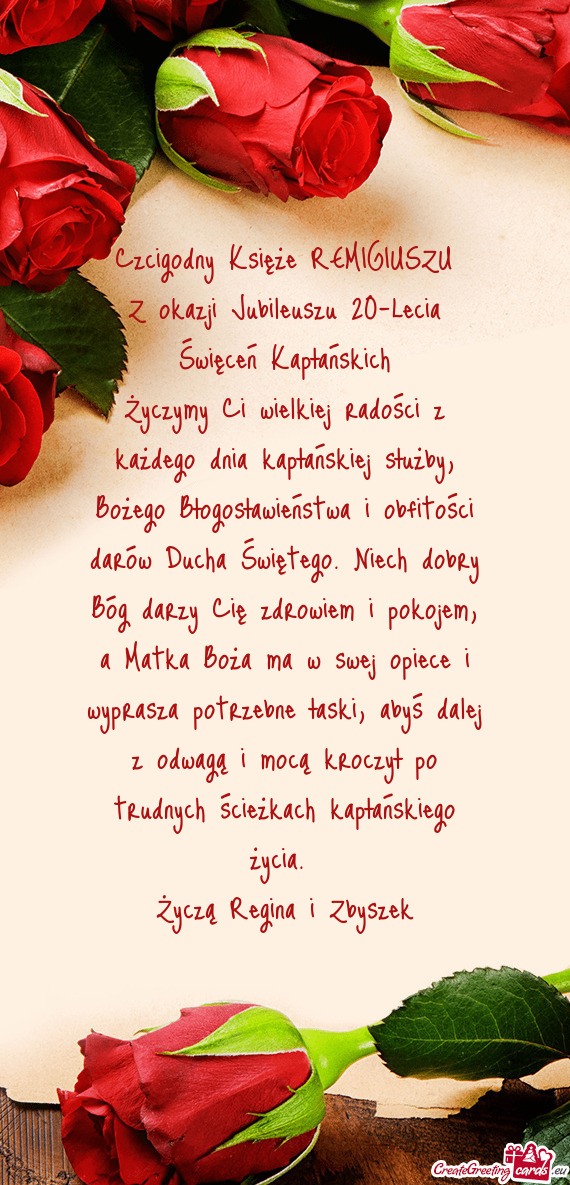 Czcigodny Księże REMIGIUSZU
Z okazji Jubileuszu 20-Lecia
Święceń Kapłańskich
Życzymy Ci wielkiej radości z
każdego dnia kapłańskiej służby,
Bożego Błogosławieństwa i obfitości
darów Ducha Świętego. Niech dobry
Bóg darzy Cię zdrowiem i pokojem,
a Matka Boża ma w swej opiece i
wyprasza potrzebne łaski, abyś dalej
z odwagą i mocą kroczył po
trudnych ścieżkach kapłańskiego
życia.
Życzą Regina i Zbyszek
CreateGreetingcards.eu